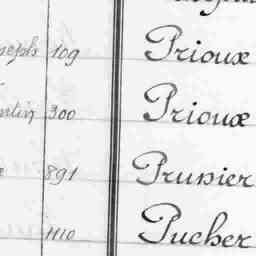 109 Prioux
300 Prioux
891 Prunier
1110 Pucher